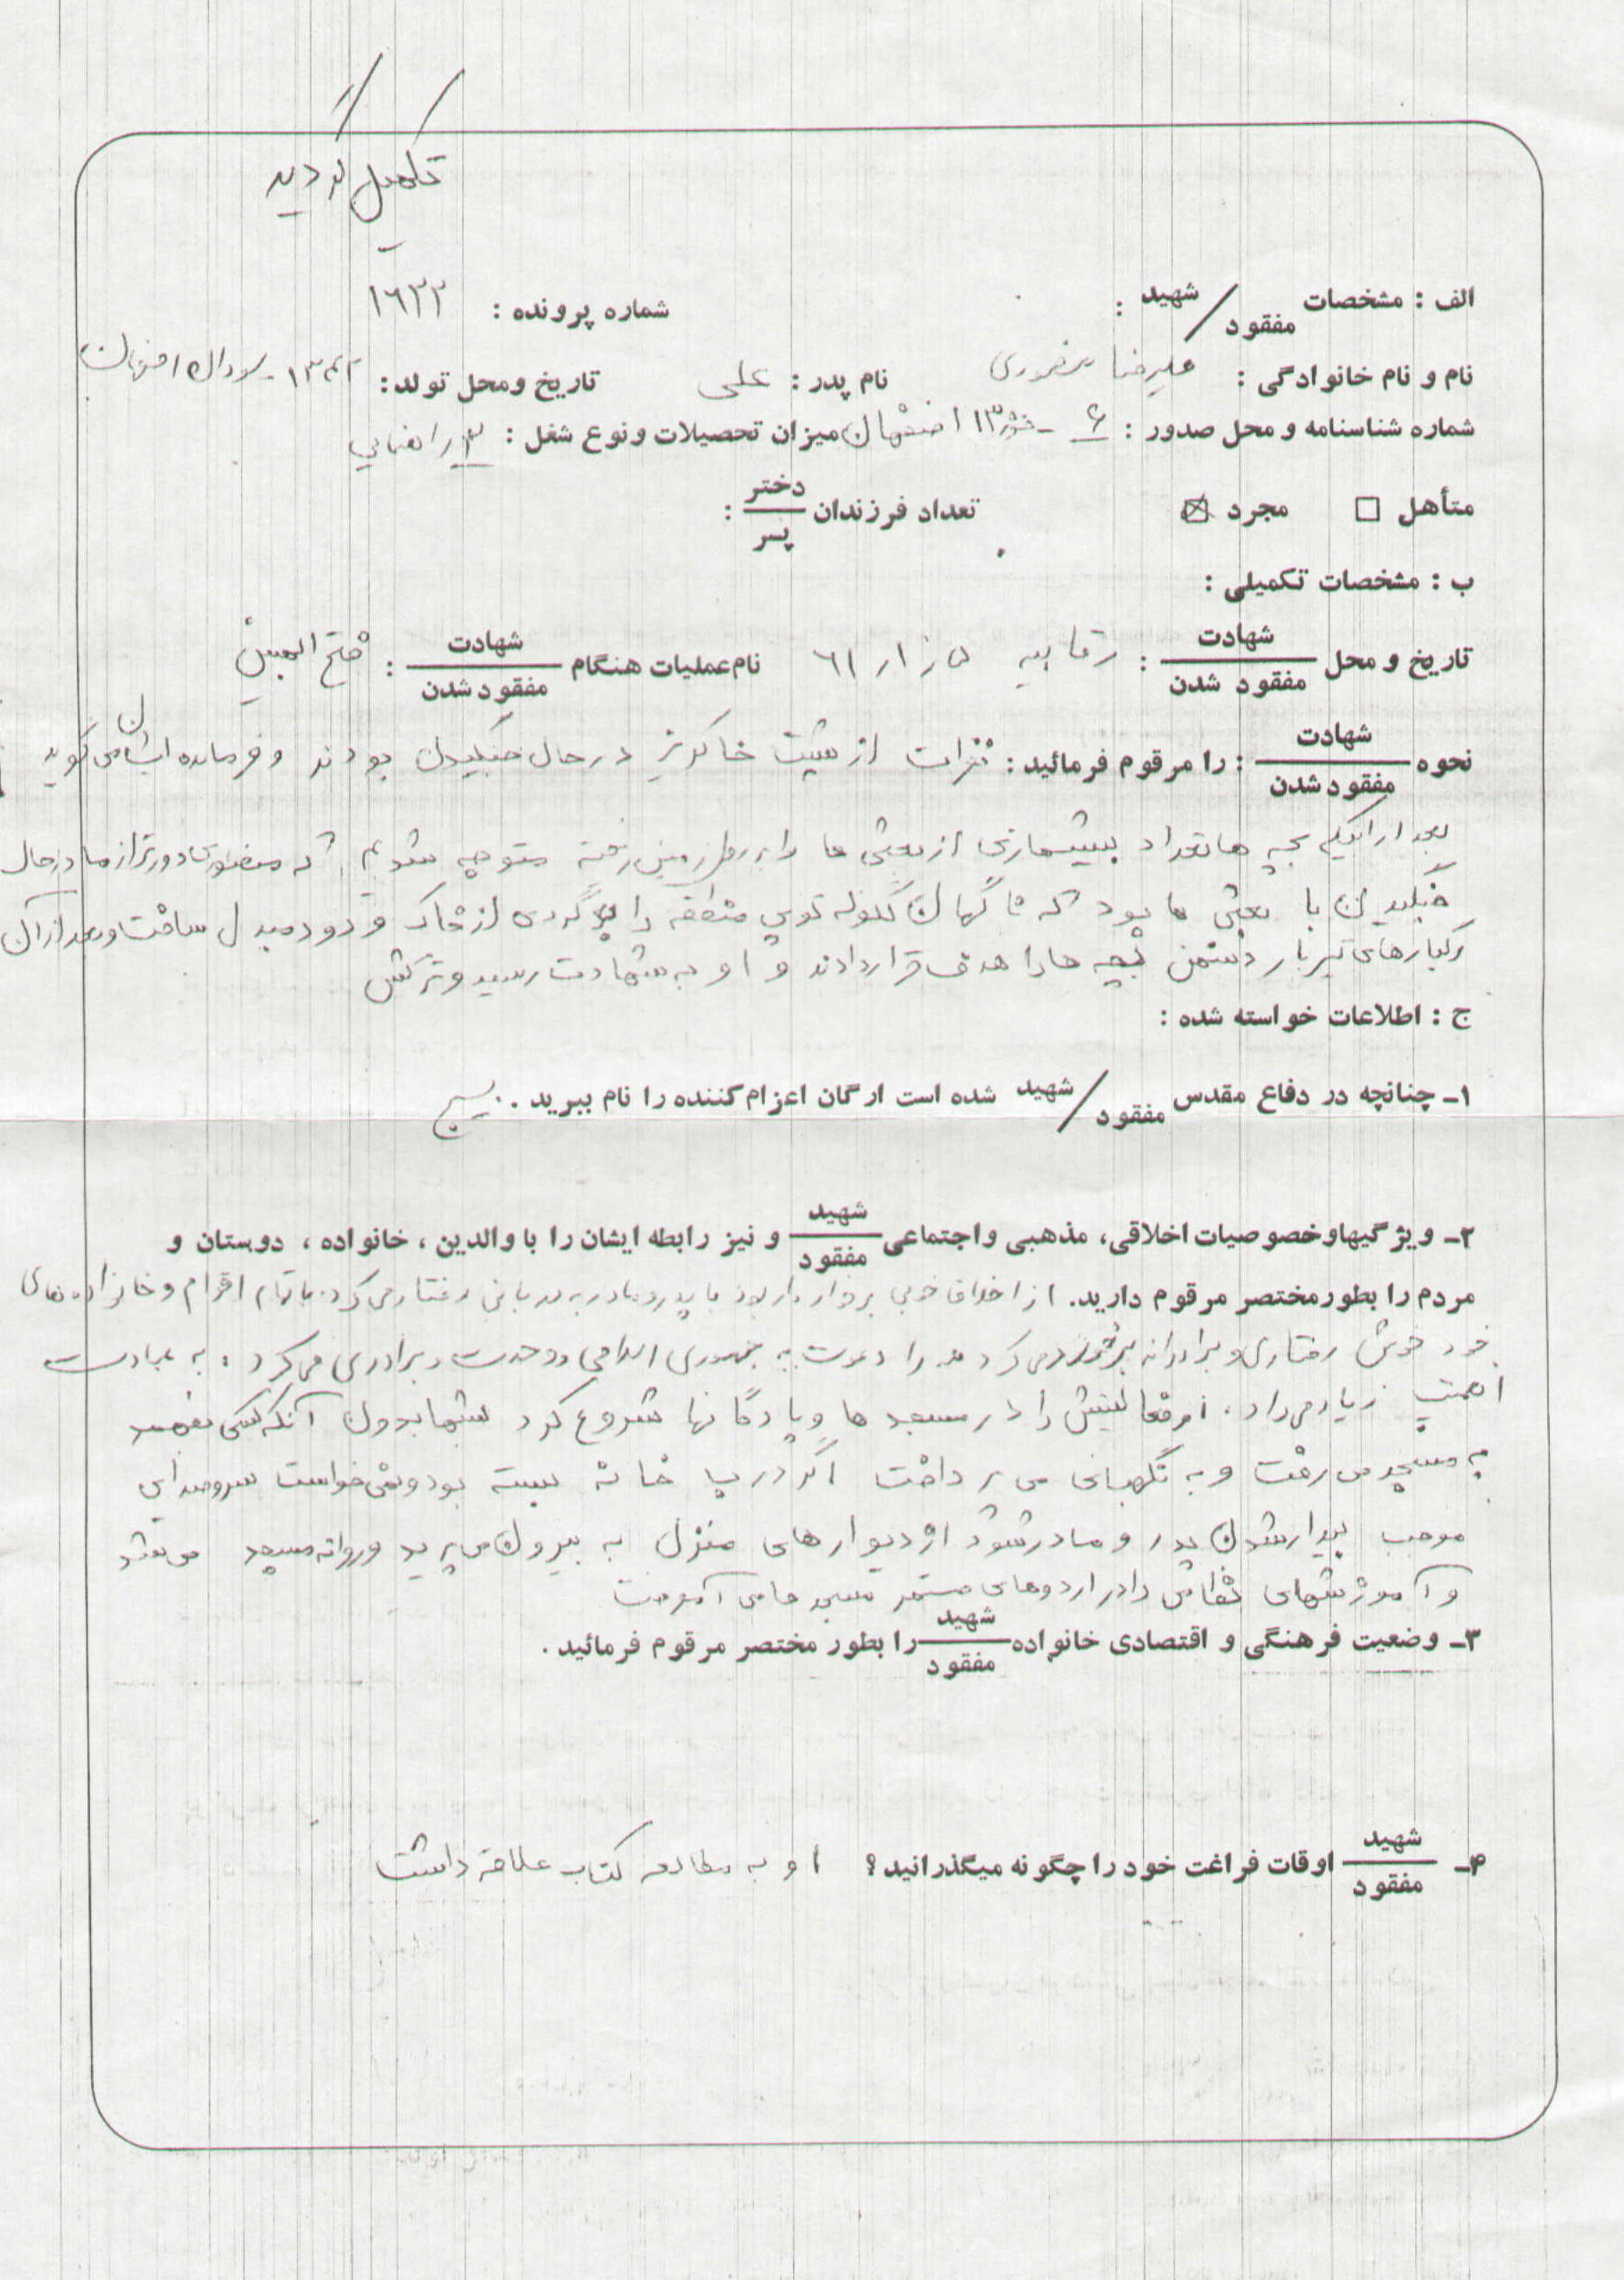 تکمیل گردید
الف : مشخصات شهید / مفقود :
شماره پرونده : ۱۶۲۲
نام و نام خانوادگی : علیرضا منصوری نام پدر : علی تاریخ ومحل تولد : اصفهان
شماره شناسنامه و محل صدور : ۶ - اصفهان میزان تحصیلات ونوع شغل : راهنمایی
متأهل ☐ مجرد ☒ تعداد فرزندان دختر / پسر :
ب : مشخصات تکمیلی :
تاریخ و محل شهادت / مفقود شدن : رقابیه ۵ ر ۱ ر ۶۱ نام عملیات هنگام شهادت / مفقود شدن : فتح المبین
نحوه شهادت / مفقود شدن : را مرقوم فرمائید : نفرات از پشت خاکریز درحال جنگیدن بودند و فرمانده ایشان می گوید
بعد از اینکه بچه ها تعداد بیشماری از بعثی ها را به رو زمین ریخته متوجه شدیم که منصوری دورتر از ما درحال
جنگیدن با بعثی ها بود که ناگهان گلوله توپی منطقه را به گردی از خاک و دود مبدل ساخت و بعد از آن
رگبارهای تیربار دشمن بچه ها را هدف قرار دادند و او به شهادت رسید و ترکش
ج : اطلاعات خواسته شده :
۱- چنانچه در دفاع مقدس شهید / مفقود شده است ارگان اعزام کننده را نام ببرید . بسیج
۲- ویژگیها و خصوصیات اخلاقی، مذهبی واجتماعی شهید / مفقود و نیز رابطه ایشان را با والدین ، خانواده ، دوستان و
مردم را بطور مختصر مرقوم دارید. از اخلاق خوبی برخوردار بود با پدر و مادر به مهربانی رفتار می کرد. با تمام اقوام و خانواده های
خود خوش رفتاری و برادرانه برخورد می کرد همه را دعوت به جمهوری اسلامی و وحدت و برادری می کرد . به عبادت
اهمیت زیاد می داد . او فعالیتش را در مسجد ها و پادگانها شروع کرد شبها بدون آنکه کسی بفهمد
به مسجد می رفت و به نگهبانی می پرداخت اگر درب خانه بسته بود و نمی خواست سروصدایی
موجب بیدار شدن پدر و مادر شود از دیوارهای منزل به بیرون می پرید و روانه مسجد می شد
و آموزشهای نظامی را در اردوهای مستمر مسجد ها می آموخت
۳- وضعیت فرهنگی و اقتصادی خانواده شهید / مفقود را بطور مختصر مرقوم فرمائید .
۴- شهید / مفقود اوقات فراغت خود را چگونه میگذرانید ؟ او به مطالعه کتاب علاقه داشت